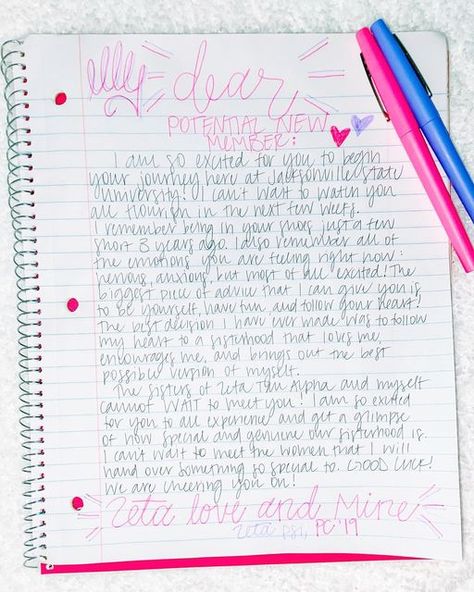 dear
POTENTIAL NEW
MEMBER:
I am so excited for you to begin
your journey here at Jacksonville State
University! I can't wait to watch you
all flourish in the next few weeks.
I remember being in your shoes just a few
short 3 years ago. I also remember all of
the emotions you are feeling right now:
nervous, anxious, but most of all excited! The
biggest piece of advice that I can give you is
to be yourself, have fun, and follow your heart!
The best decision I have ever made was to follow
my heart to a sisterhood that loves me,
encourages me, and brings out the best
possible version of myself.
The sisters of Zeta Tau Alpha and myself
cannot WAIT to meet you! I am so excited
for you to all experience and get a glimpse
of how special and genuine our sisterhood is.
I can't wait to meet the women that I will
hand over something so special to. GOOD LUCK!
We are cheering you on!
Zeta love and Mine
Zeta Psi, PC '19